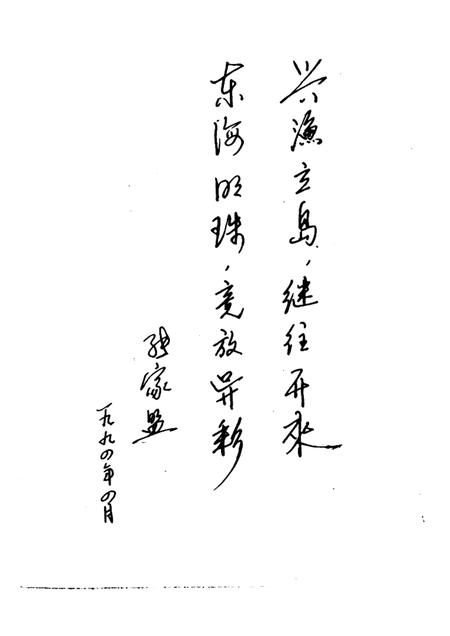 兴渔立岛、继往开來
东海明珠、竞放异彩
张家盟
一九九四年四月